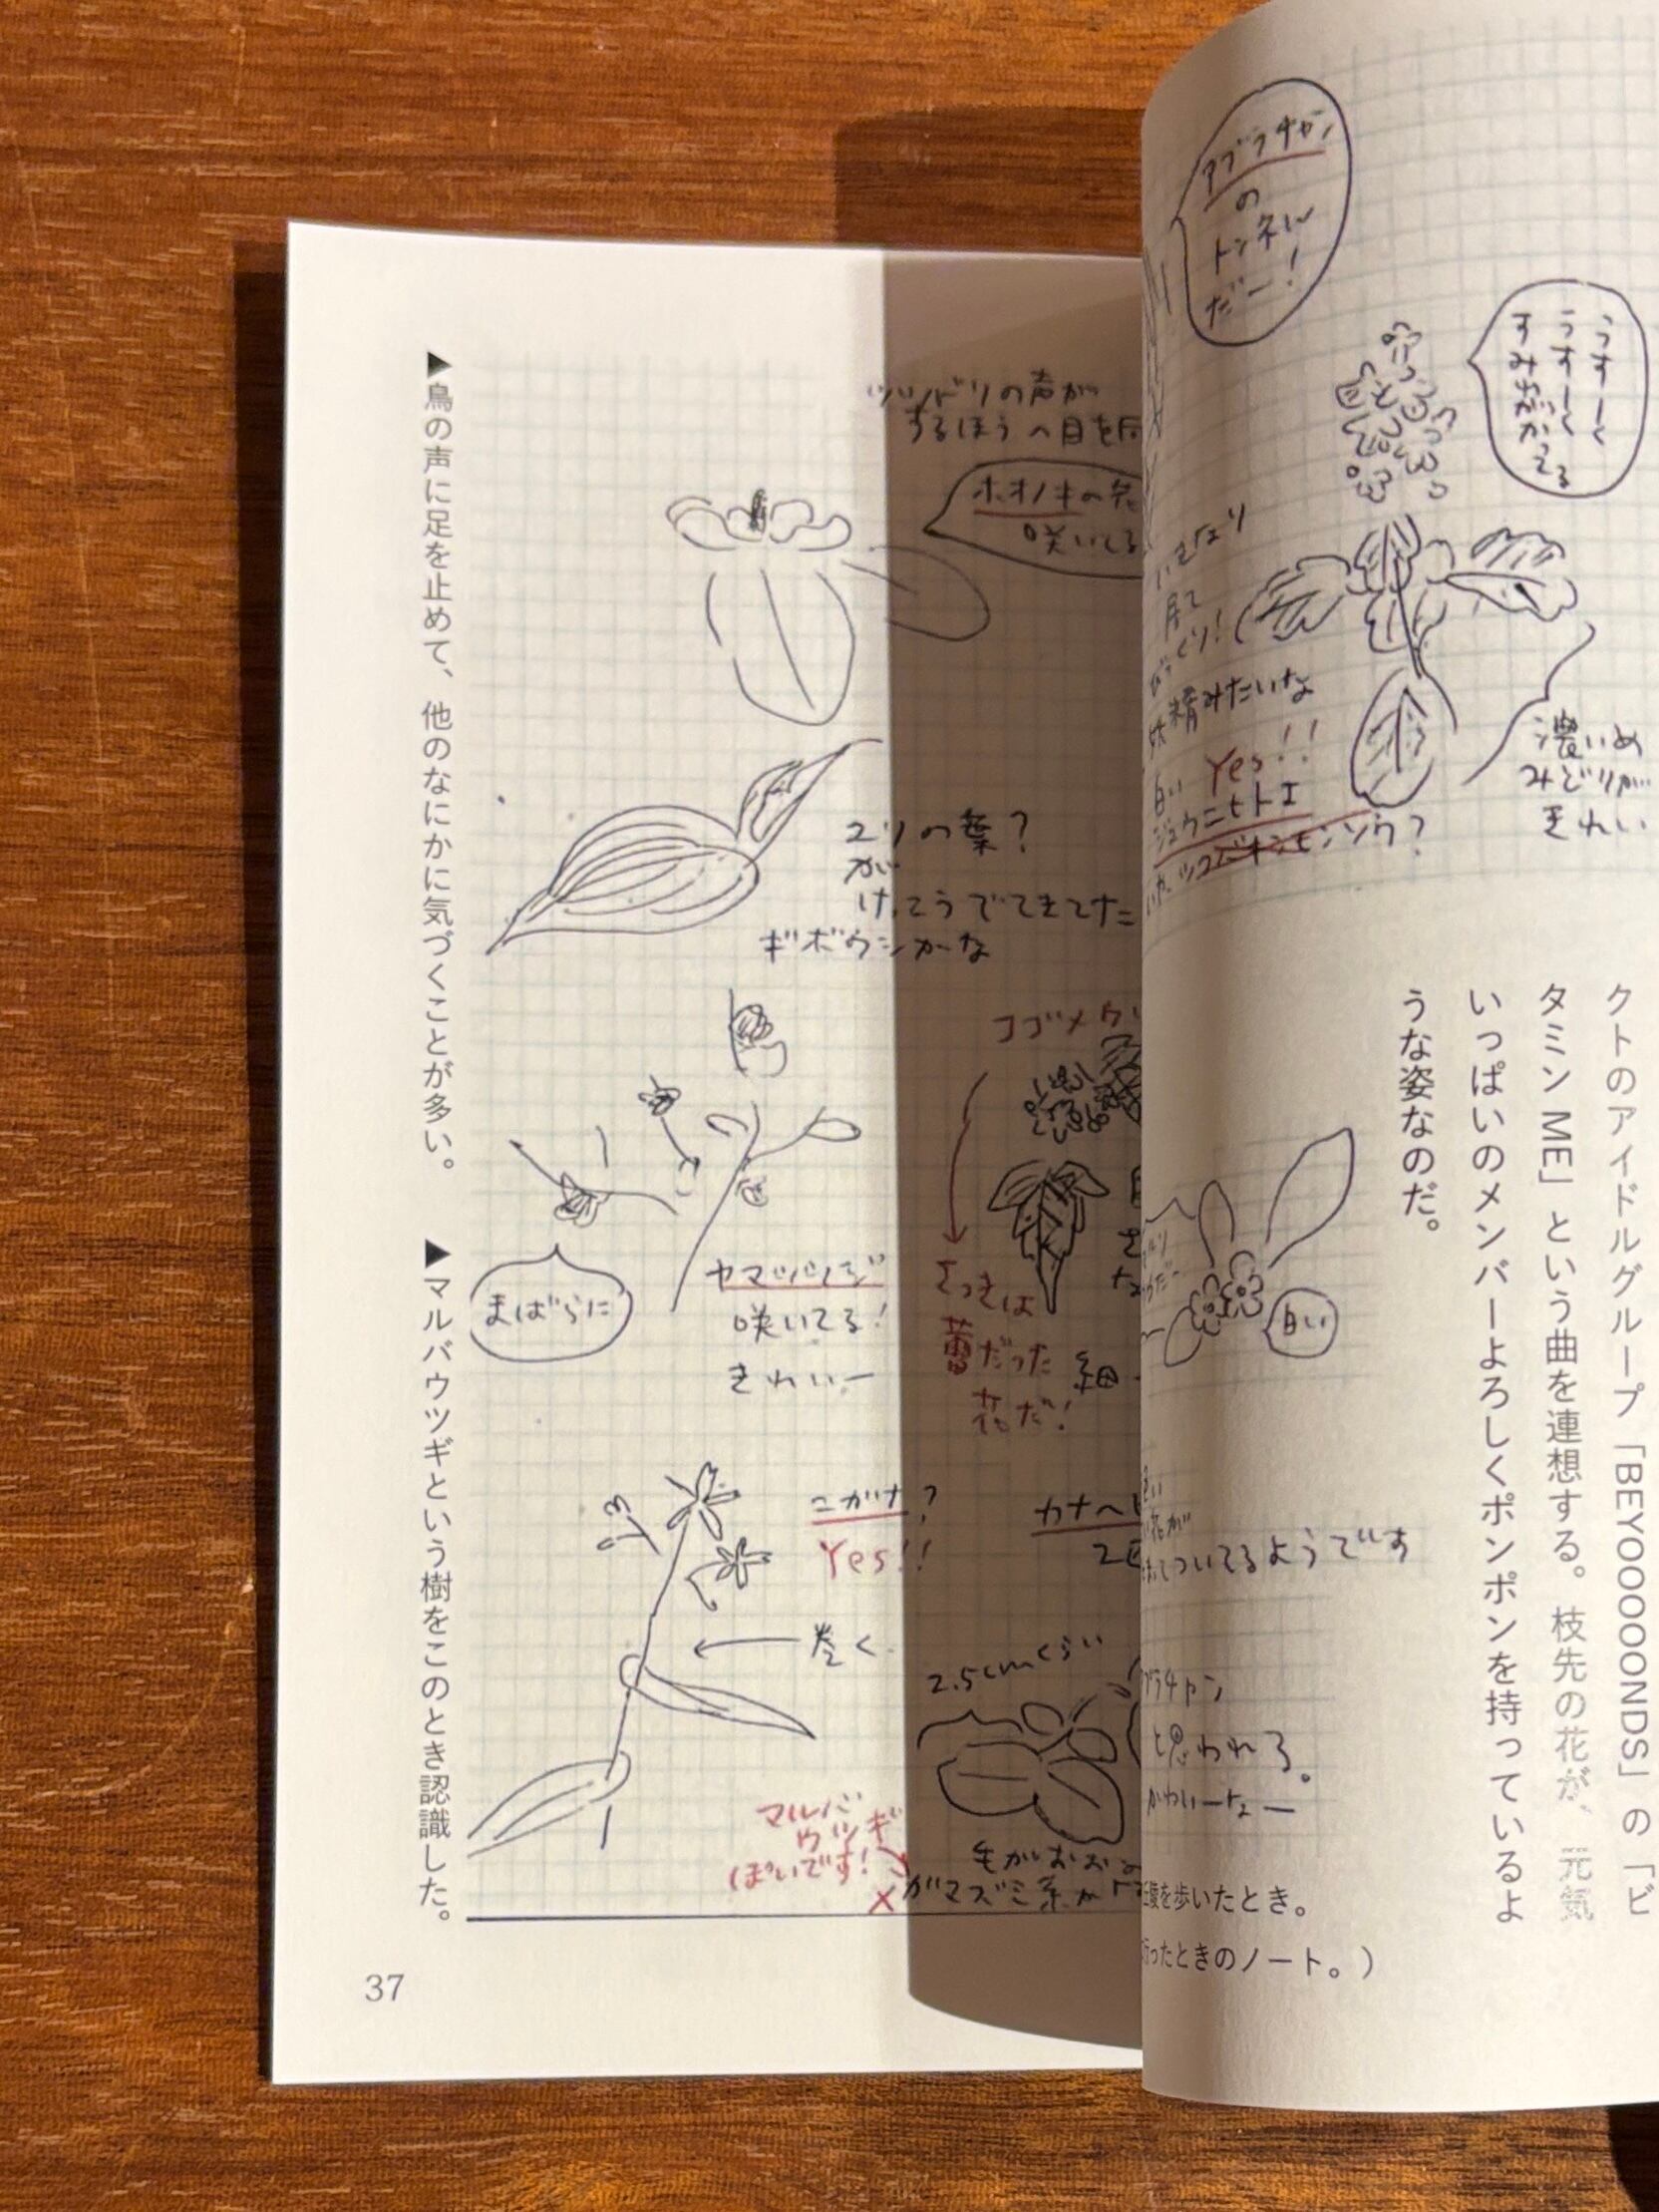 アブラチャン
の
トンネル
だー！
うすーく
うすーく
すみれがかってる
いきなり
居て
びっくり！
妖精みたいな
白い Yes!!
ジュウニヒトエ
濃いめ
みどりが
きれい
クトのアイドルグループ「BEYOOOOONDS」の「ビ
タミンME」という曲を連想する。枝先の花が、元気
いっぱいのメンバーよろしくポンポンを持っているよ
うな姿なのだ。
白い
ついてるようです
思われる。
かわいーなー
を歩いたとき。
ったときのノート。）
ツツドリの声が
するほうへ目を向
ホオノキの花
咲いてる
ユリの葉？
が
けっこうでてきてた
ギボウシかな
コゴメウ
さっきは
蕾だった
花だ！
細
まばらに
ヤマツツジ
咲いてる！
きれいー
ニガナ？
Yes!!
巻く
カナヘビ
2.5cmくらい
マルバ
ウツギ
ぽいです！
毛がおお
× ガマズミ系か
▶鳥の声に足を止めて、他のなにかに気づくことが多い。 ▶マルバウツギという樹をこのとき認識した。
37